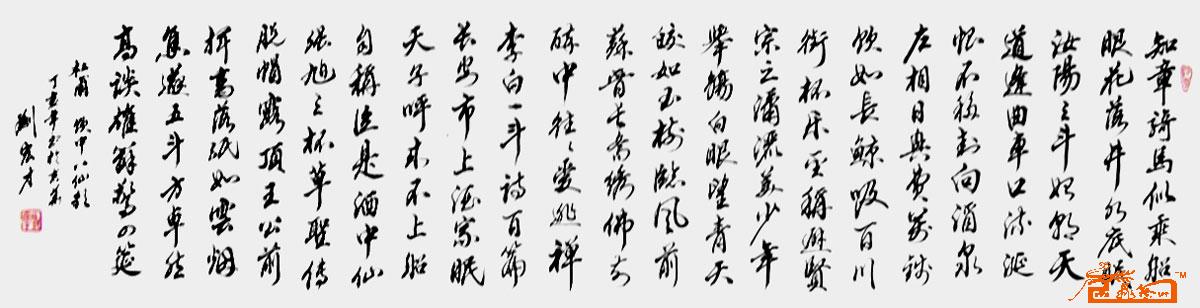 知章騎馬似乘船
眼花落井水底眠
汝陽三斗始朝天
道逢曲車口流涎
恨不移封向酒泉
左相日興費萬錢
飲如長鯨吸百川
銜杯樂聖稱避賢
宗之瀟灑美少年
舉觴白眼望青天
皎如玉樹臨風前
蘇晉長齋繡佛前
醉中往々愛逃禪
李白一斗詩百篇
長安市上酒家眠
天子呼来不上船
自稱臣是酒中仙
張旭三杯草聖傳
脱帽露頂王公前
揮毫落紙如雲烟
焦遂五斗方卓然
高談雄辯驚四筵
杜甫 飲中八仙歌
丁亥年書於
劉宏才